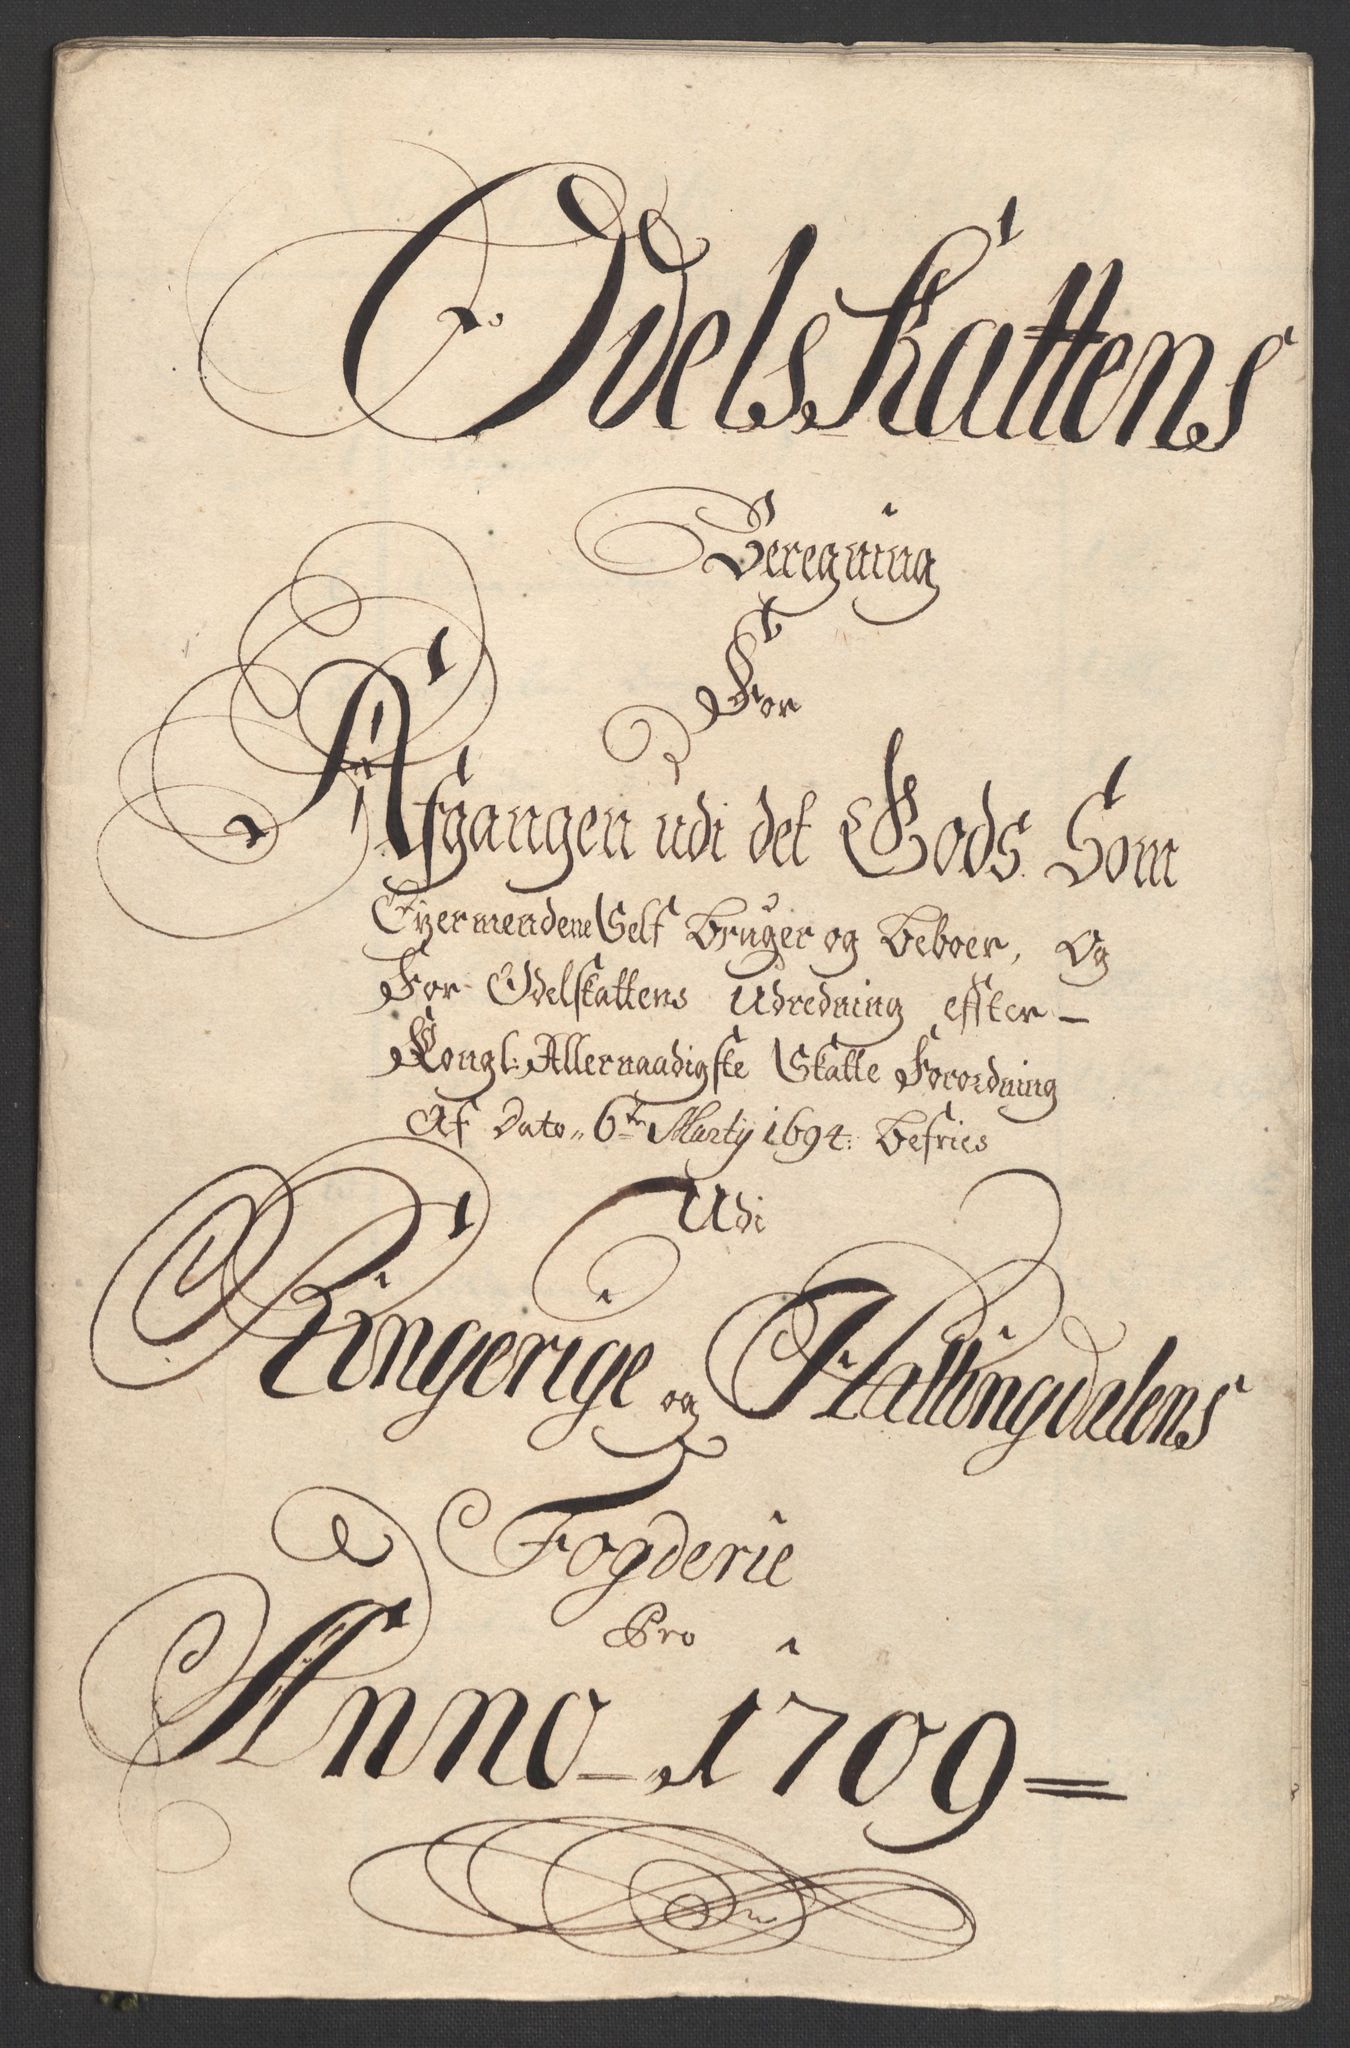 Odelskattens
Beregning
For
Afgangen udi det Gods Som
Eyermendene Self Bruger og Beboer, Og
For Odelskattens Udredning effter
Kongl: Allernaadigste Skatte Forordning
Af Dato 6te Marty 1694: Befries
Udi
Ringerige og Hallingdalens
Fogderie
Pro
Anno 1709